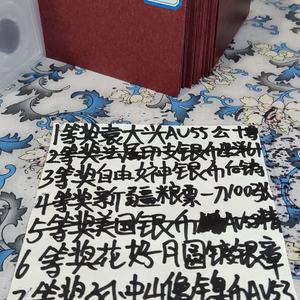 1等奖袁大头AV55公博
2等奖法属印支银币
3等奖自由女神银币
4等奖新疆粮票一刀100张
5等奖美国银币AV55
6等奖花好月圆镀银章
7等奖孙中山像镍币AV53